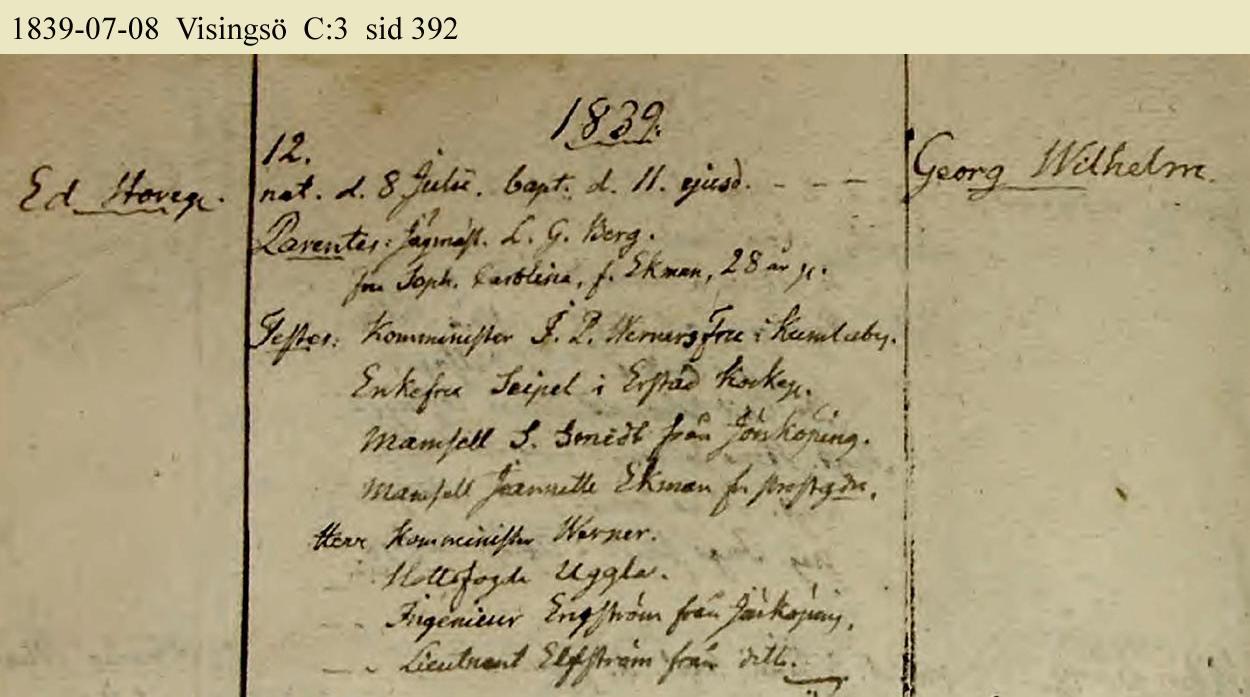 1839-07-08 Visingsö C:3 sid 392
1839.
12.
Ed
nat. d. 8 Julii. bapt. d. 11. ejusd. - - -
Georg Wilhelm.
Parentes: Jägmäst. L. G. Berg.
fru Soph. Carolina, f. Ekman, 28 år g.
Testes: Komminister J. P. Werners fru i Kumlaby.
Enkefru Seipel i Erstad
Mamsell S. Smidt från Jönköping.
Mamsell Jeannette Ekman fr. prostgdn.
Herr Komminister Werner.
Uggla.
Ingenieur Engström från Jönköping.
Lieutnant Elfström från dito.